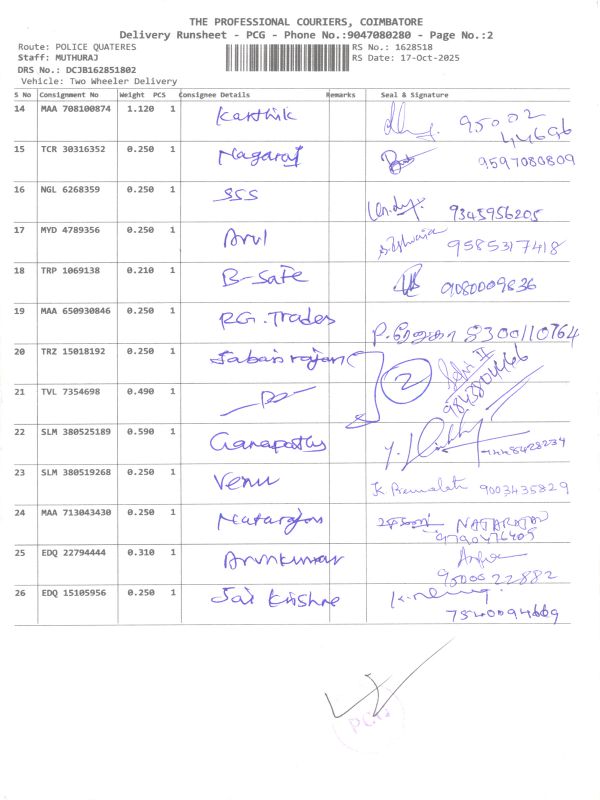 THE PROFESSIONAL COURIERS, COIMBATORE
Delivery Runsheet - PCG - Phone No.:9047080280 - Page No.:2
Route: POLICE QUATERES RS No.: 1628518
Staff: MUTHURAJ RS Date: 17-Oct-2025
DRS No.: DCJB162851802
Vehicle: Two Wheeler Delivery
S No Consignment No Weight PCS Consignee Details Remarks Seal & Signature
14 MAA 708100874 1.120 1 Karthik 95002
44696
15 TCR 30316352 0.250 1 Nagaraj 9597080809
16 NGL 6268359 0.250 1 SSS 9345956205
17 MYD 4789356 0.250 1 Arul 9585317418
18 TRP 1069138 0.210 1 B-Safe 9080009836
19 MAA 650930846 0.250 1 RG.Trades 8300110764
20 TRZ 15018192 0.250 1 2
9843804466
21 TVL 7354698 0.490 1
22 SLM 380525189 0.590 1 Ganapathy 9448428234
23 SLM 380519268 0.250 1 Venu 9003435829
24 MAA 713043430 0.250 1 Natarajan NATARAJAN
9790476405
25 EDQ 22794444 0.310 1 Arunkumar
9500022882
26 EDQ 15105956 0.250 1 Jai Krishna
7540094609